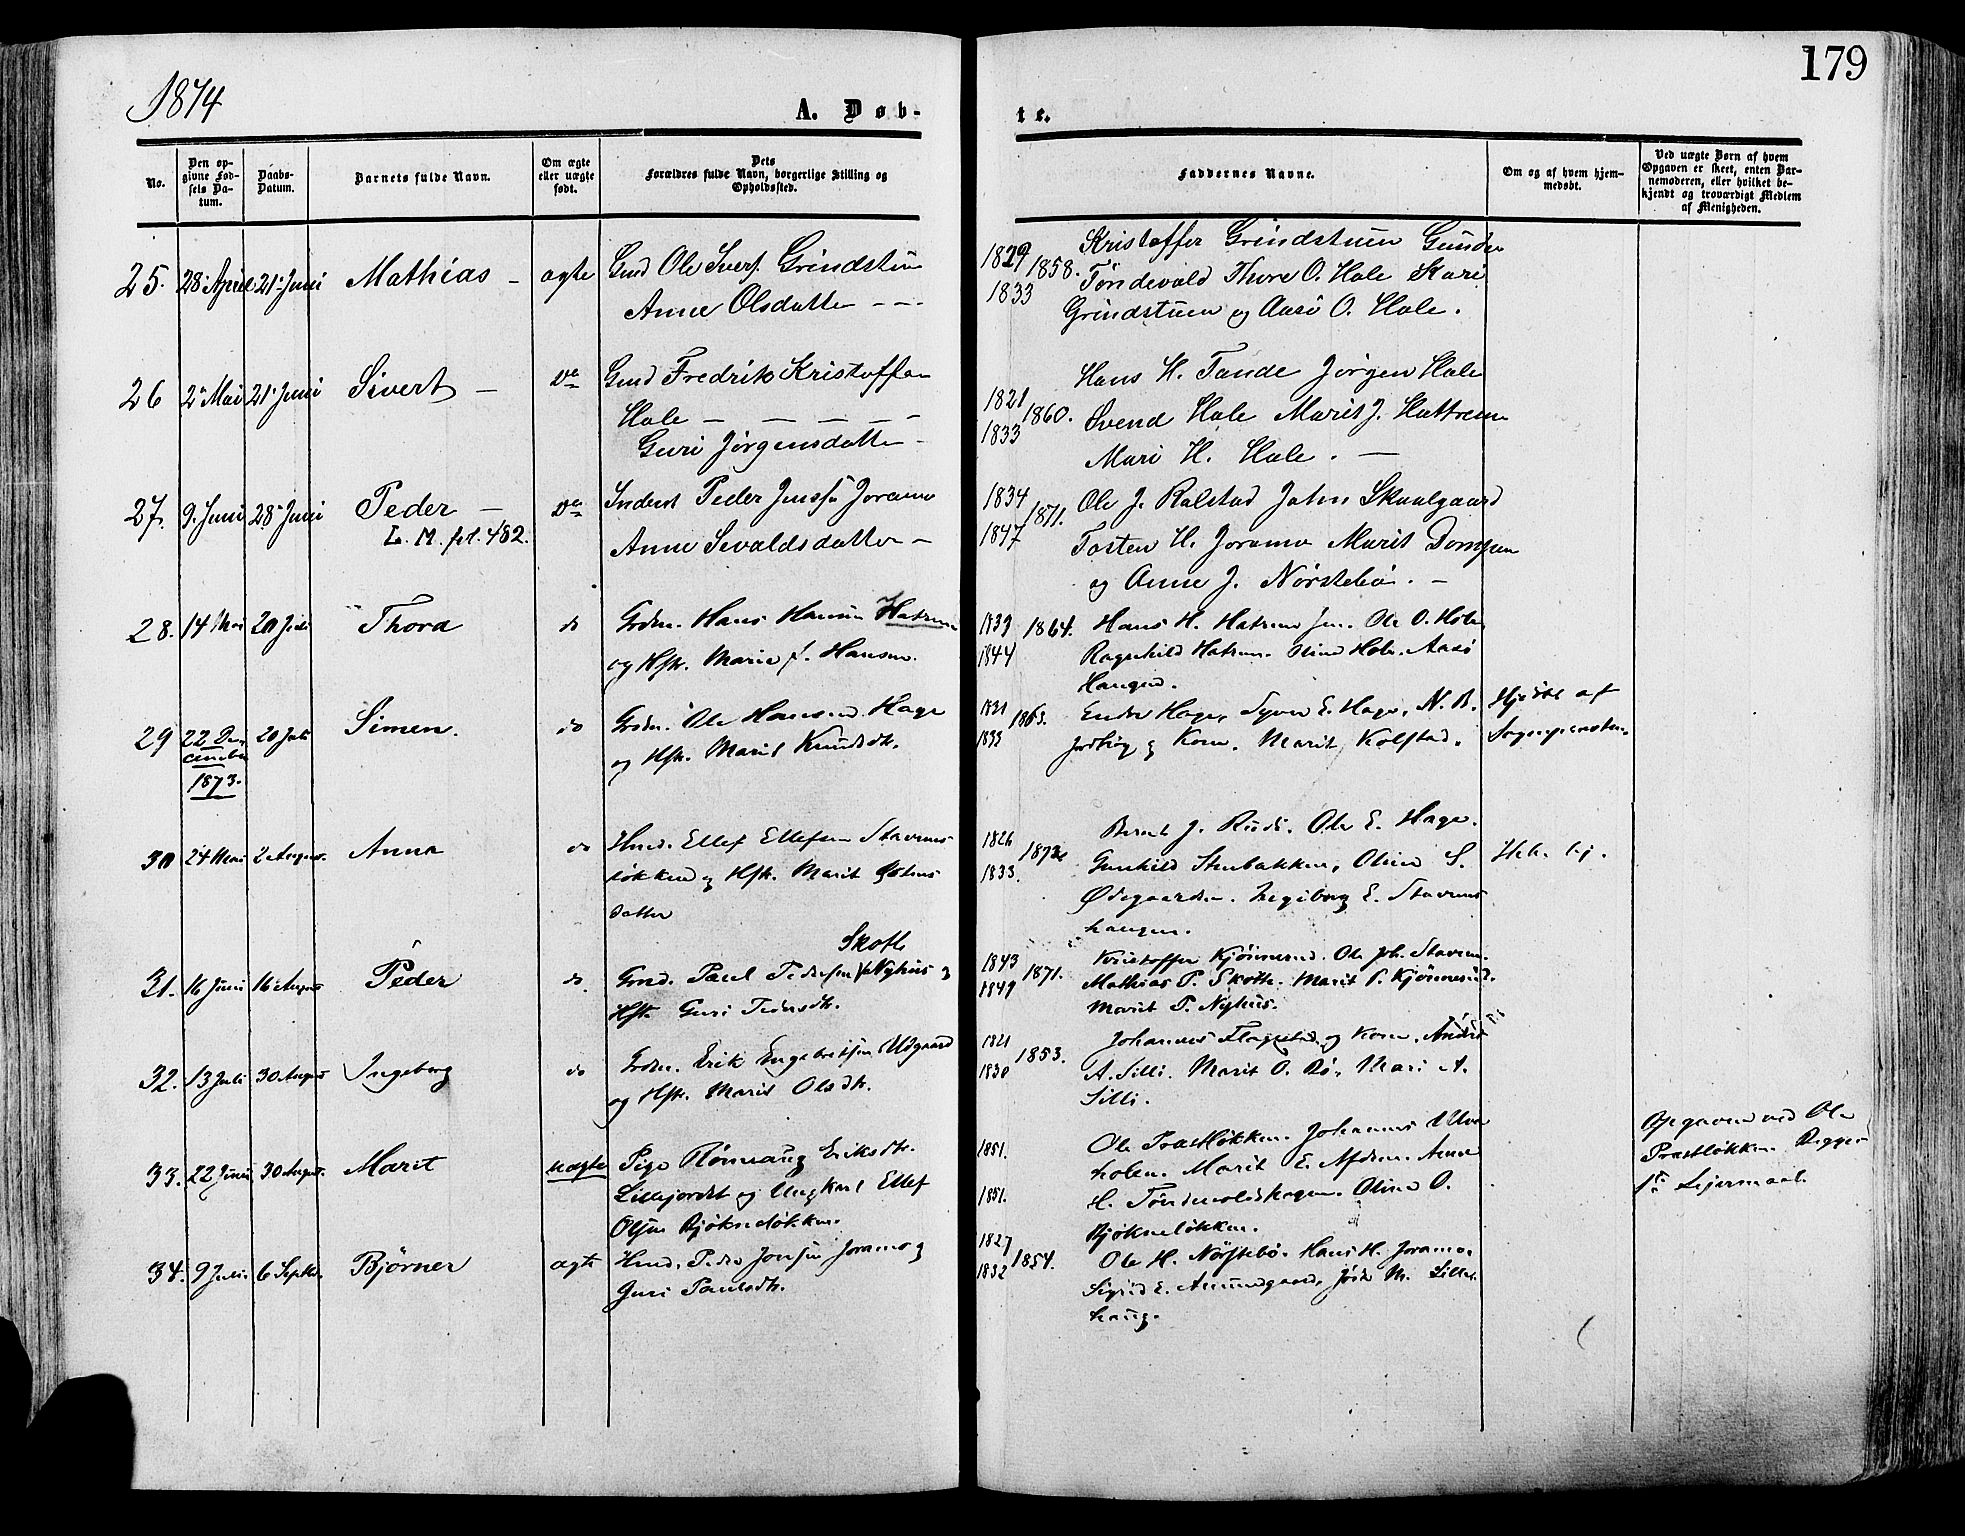 1874
179
A. Døb-
te.
No.
Den op-
givne Fød-
sels Da-
tum.
Daabs-
Datum.
Barnets fulde Navn.
Om ægte
eller uægte
født.
Dets
Forældres fulde Navn, borgerlige Stilling og
Opholdssted.
Faddernes Navne.
Om og af hvem hjem-
medøbt.
Ved uægte Børn af hvem
Opgaven er skeet, enten Bar-
nemoderen, eller hvilket be-
kjendt og troværdigt Medlem
af Menigheden.
25. 28 April 21 Juni Mathias - ægte Gmd Ole Svers. Grindstuen
Anne Olsdatter - - -
1829 1858. Kristoffer Grindstuen Gunder
1833 Töndevold Thore O. Hole Kari
Grindstuen og Aasö O. Hole.
26 2 Mai 21 Juni Sivert - Do Gmd Fredrik Kristoffer
Hole - - - -
Guri Jørgensdatter -
1821 1860. Hans H. Tande Jørgen Hole
1833 Svend Hole Marit J. Hattrem
Mari H. Hole. -
27. 9. Juni 28 Juni Peder - Do Inderst Peder Jenss Joramo
L. M. fol. 482. Anne Sevaldsdatter -
1834 1871. Ole J. Rolstad John Skaalgaard
1847 Tosten H. Joramo Marit Dompen
og Anne J. Nörstebö. -
28. 14 Mai 20 Juli Thora do Grdm. Hans Hansen Hatrem
og Hst. Marie J. Hansen.
1839 1864. Hans H. Hatrem Jun. Ole O. Hole
1844 Ragnhild Hatrem. Stine Hole. Aasö
Haugen.
29 22 De- 20 Juli Simen. do Grdm. Ole Hansen Hage
cember og Hst. Marit Knudsdt.
1873.
1831 1863. Endre Hage, Syver E. Hage, N. B.
1833 Jordhøy og Kone. Marit Kolstad.
Hjdöbt af
Sognepresten.
30 24 Mai 2 August. Anna do Hmd. Ellef Ellefsen Stavens-
løkken og Hst. Marit Østens
datter
1826 1872 Bernt J. Rudi. Ole E. Hage.
1833. Gunhild Stubakken, Oline S.
Ødegaarden. Ingeborg E. Stavens
haugen.
31. 16 Juni 16 August Peder do. Skotte
Gmd. Paul Pedersen Nyhus og
Hst. Guri Pedersdt.
1843 1871. Kristoffer Kjönnerud. Ole Joh. Staven.
1849 Mathias P. Skotte. Marit P. Kjönnerud.
Marit P. Nyhus.
32. 13 Juli 30 August Ingeborg do Grdm. Erik Engebretsen Udgaard
og Hst. Marit Olsdt.
1821 1853. Johannes Flagstad og Kone. Anders
1830 A. Silli. Marit O. Bö. Mari A.
Silli.
33. 22 Juni 30 August. Marit uægte Pige Rönnaug Eriksdt.
Lillejordet og Ungkarl Ellef
Olsen Bjökneløkken.
1851. Ole Præstløkken. Johannes Ulve
1851. holen. Marit E. Anne
H. Töndevoldshagen. Oline O.
Bjökneløkken.
Opgaven ved Ole
Præstløkken. Begges
1ste Lejermaal.
34. 9 Juli. 6 Septbr. Bjørner ægte Hmd. Peder Jonsen Joramo og
Guri Paulsdt.
1827 1854. Ole H. Nörstebö. Hans H. Joramo.
1832 Sigrid E. Amundgaard,
haug.